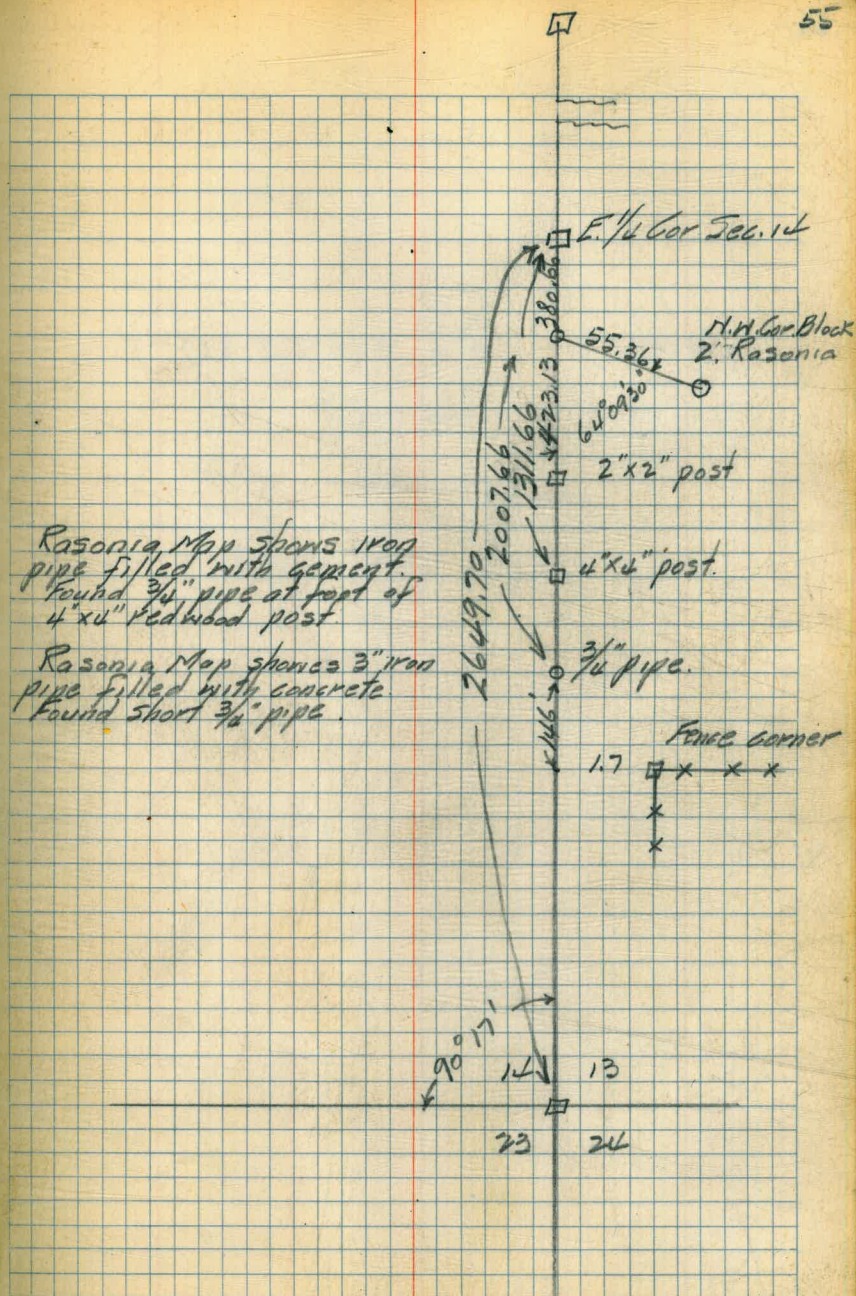 55
E. 1/4 Cor Sec. 14
380.66
N.W. Cor. Block
2, Rasonia
55.36
64° 09' 30"
423.13
2"x2" post
1311.66
2007.66
2649.70
Rasonia Map shows iron
pipe filled with cement.
Found 3/4" pipe at foot of
4"x4" redwood post
4"x4" post.
Rasonia Map shows 3" iron
pipe filled with concrete
Found short 3/4" pipe.
3/4" pipe.
146'
Fence corner
1.7
90° 17'
14 13
23 24